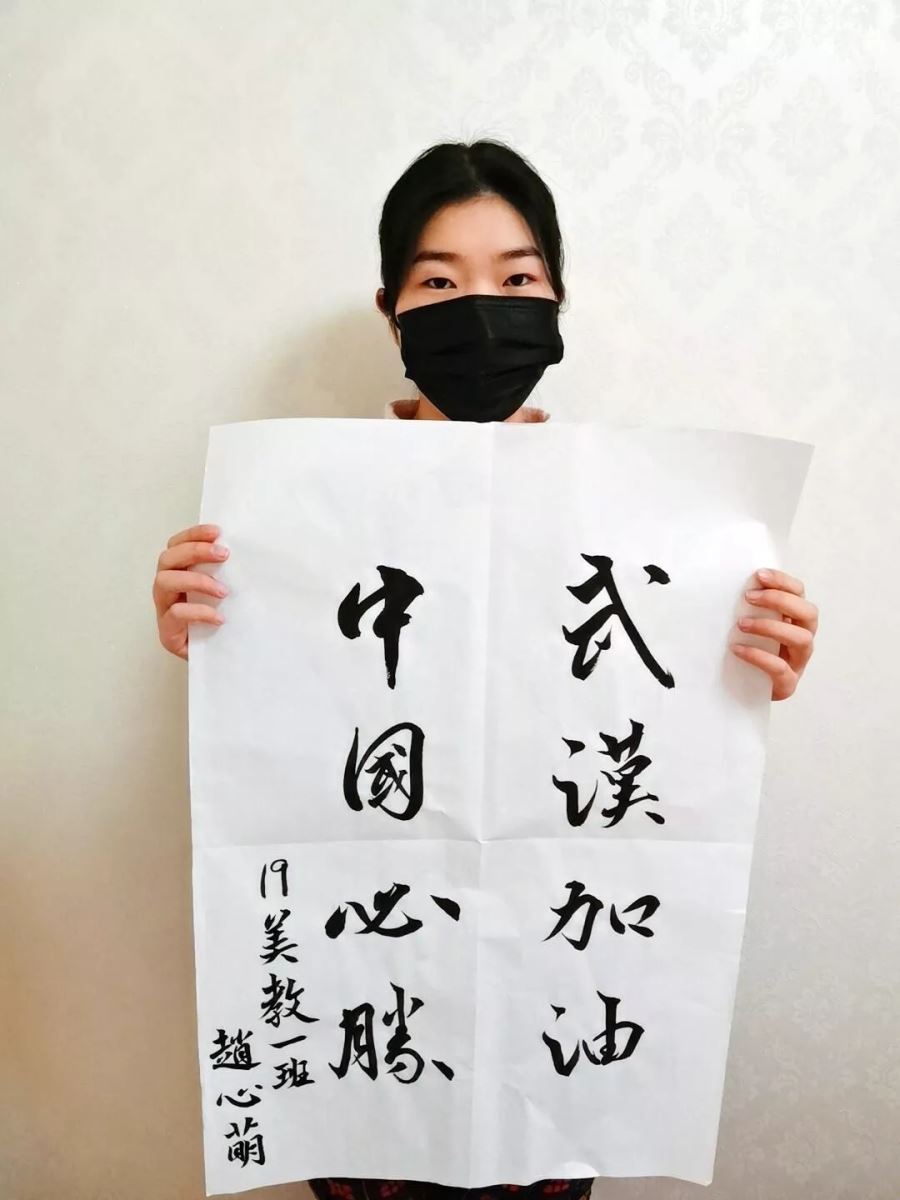 武漢加油
中國必勝
19美教一班
趙心萌